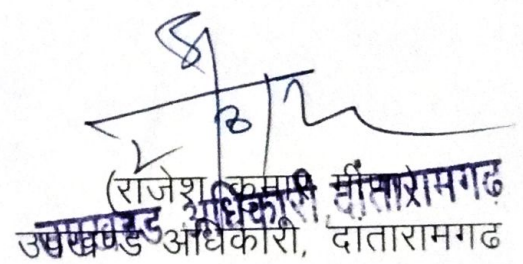 (राजेश कुमार मीणा)
उपखण्ड अधिकारी, दातारामगढ
उपखण्ड अधिकारी, दातारामगढ